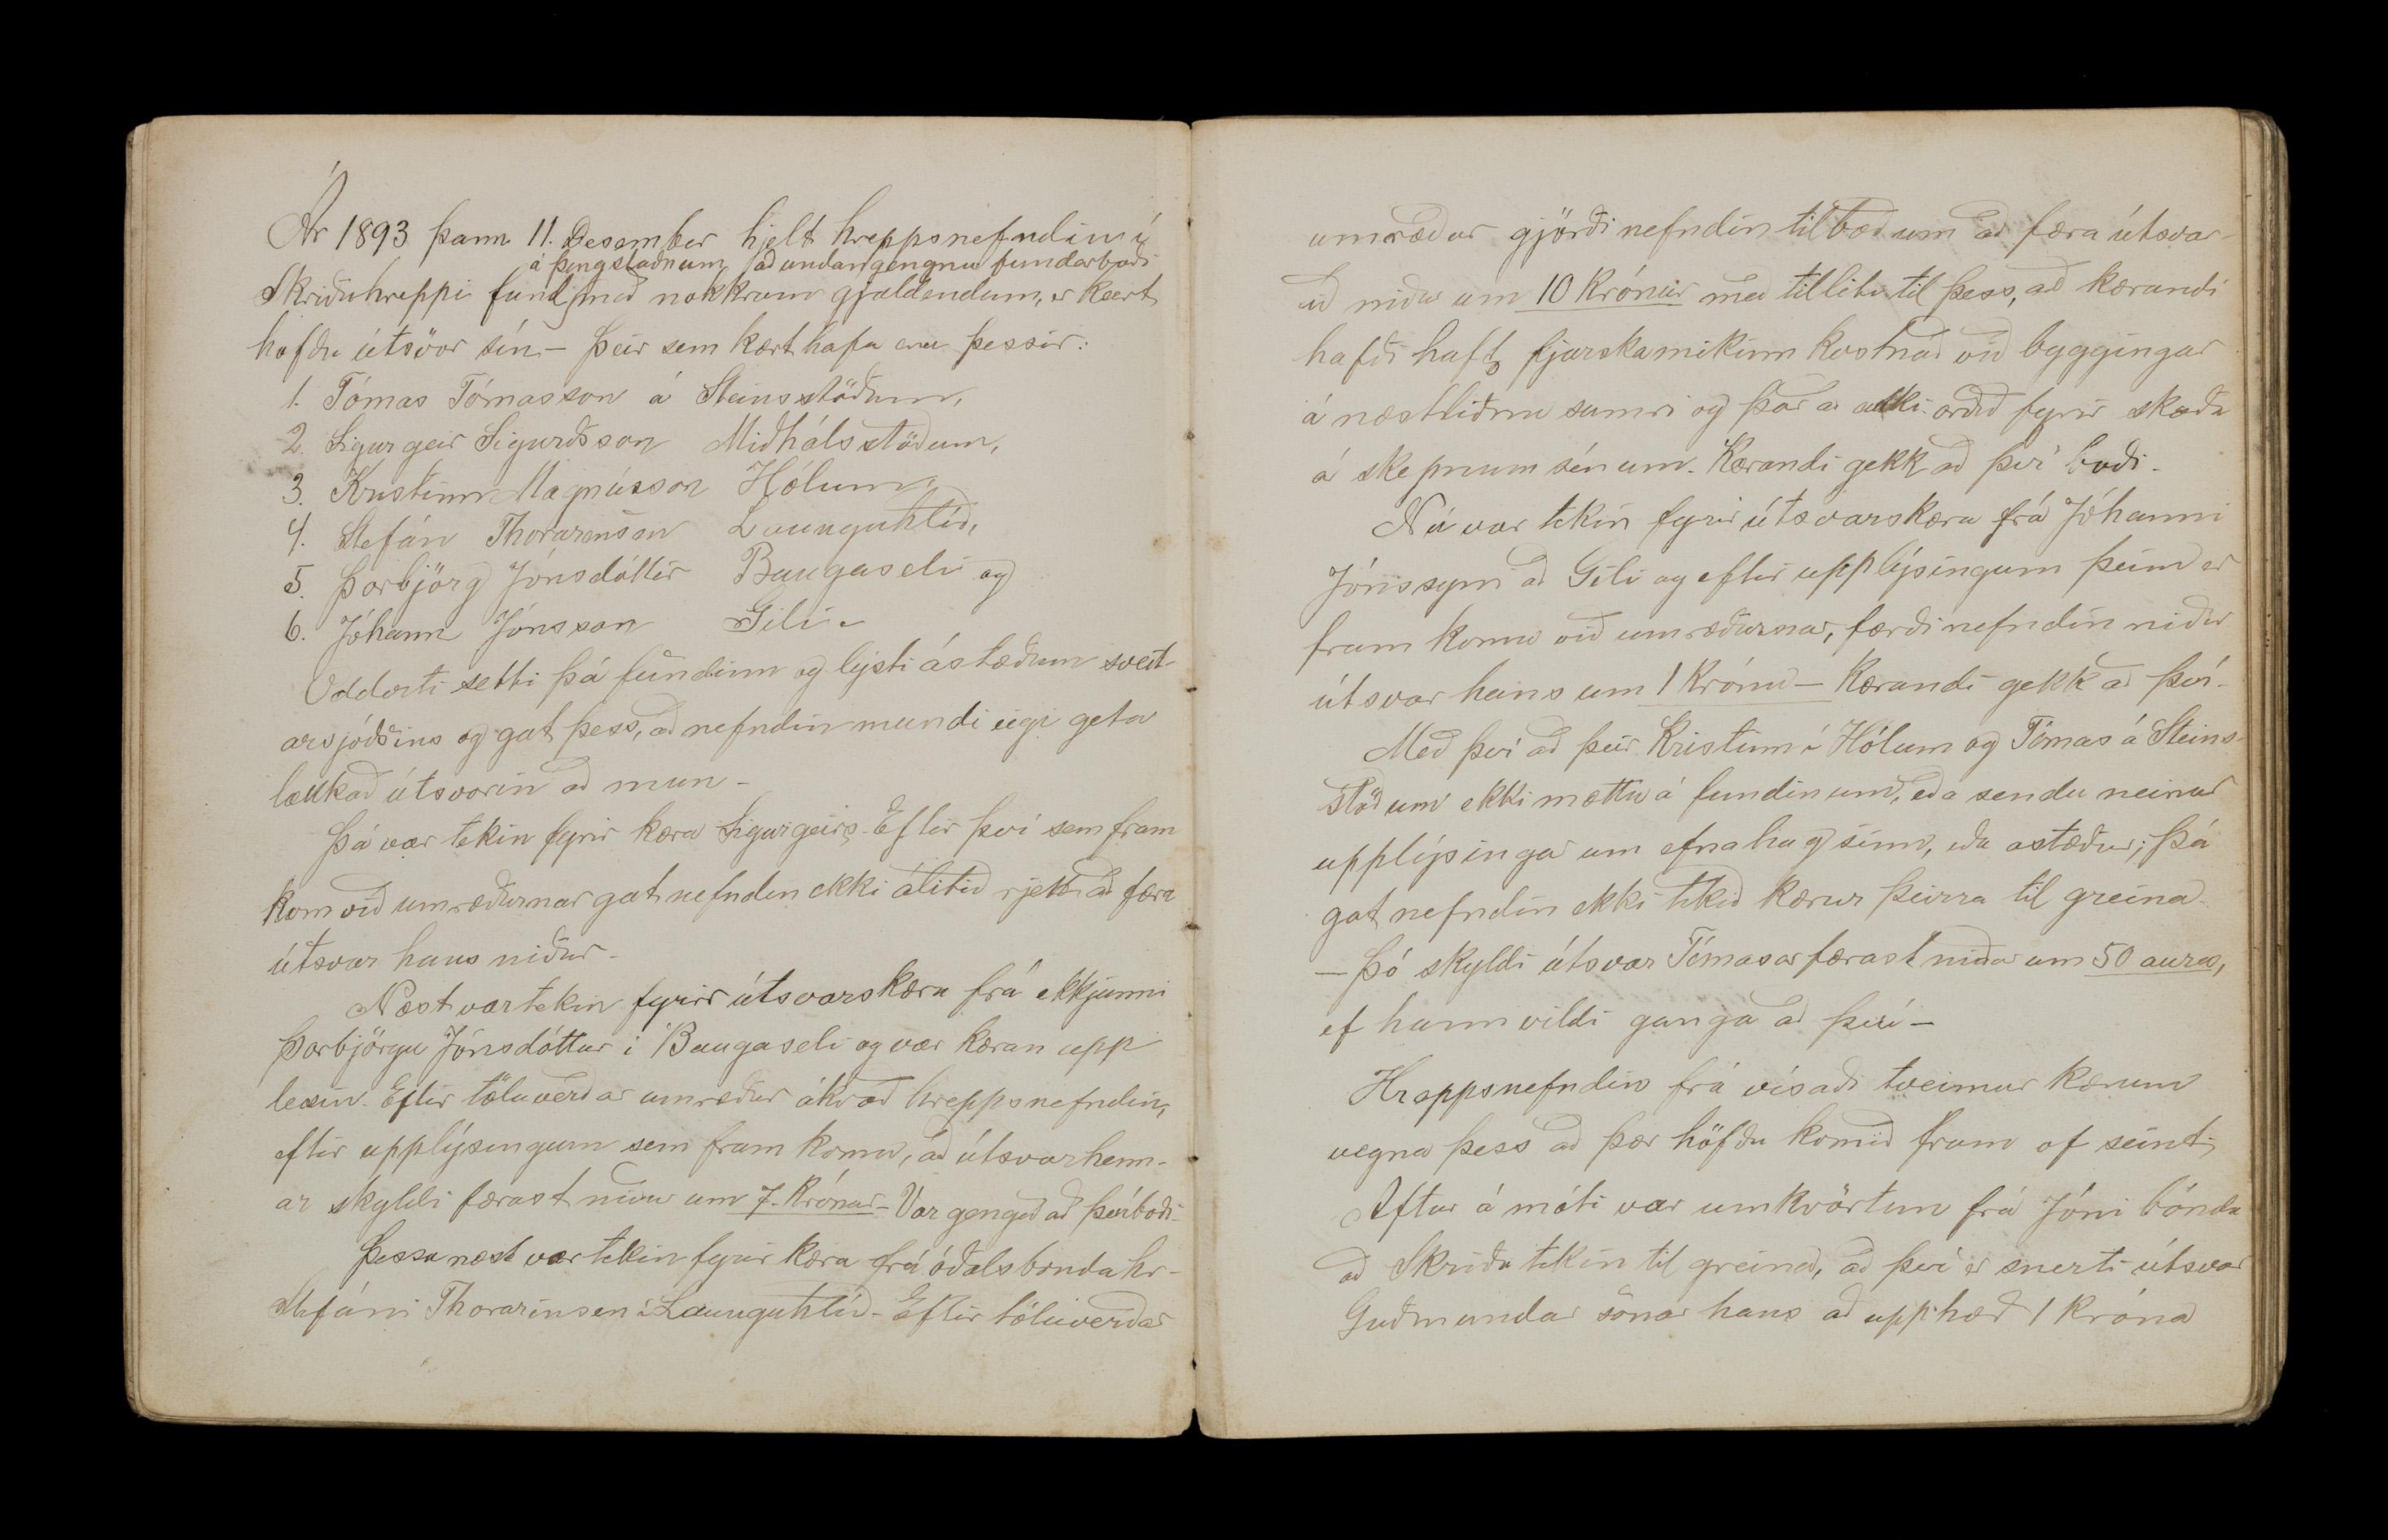 Ár 1893 þann 11. Desember hjelt hreppsnefndin í
á þingstaðnum, að undangengnu fundarboði
Skriðuhreppi fund með nokkrum gjaldendum, er kært
hafðu útsvör sín. – Þeir sem kært hafa eru þessir:
1. Tómas Tómasson á Steinsstöðum,
2. Sigurgeir Sigurðsson Miðhálsstöðum,
3. Kristinn Magnússon Hólum,
4. Stefán Thorarensen Launguhlíð,
5. Þorbjörg Jónsdóttir Baugaseli og
6. Jóhann Jónsson Gili.
Oddviti setti þá fundinn og lýsti ástæðum sveit-
arsjóðsins og gat þess, að nefndin mundi eigi geta
lækkað útsvörin að mun –
Þá var tekin fyrir kæra Sigurgeirs. Eftir því sem fram
kom við umræðurnar gat nefndin ekki álitið rjett að færa
útsvar hans niður –
Næst var tekin fyrir útsvarskæra frá ekkjunni
Þorbjörgu Jónsdóttur í Baugaseli og var kæran upp
lesin. Eftir töluverðar umræður ákvað hreppsnefndin,
eftir upplýsingum sem fram komu, að útsvar henn-
ar skyldi færast niður um 7. Krónur – Var gengið að því boði –
Þessu næst var tekin fyrir kæra frá óðalsbónda hr –
Stefáni Thorarinsen í Laungahlíð – Eftir töluverðar
umræður gjörði nefndin tilboð um að færa útsvar-
ið niður um 10 Krónur með tilliti til þess, að kærandi
hafði haft fjarska mikinn kostnað við byggingar
á næstliðnu sumri og þar að auki orðið fyrir skaða
á skepnum sínum. Kærandi gekk að því boði –
Nú var tekin fyrir útsvarskæra frá Jóhanni
Jónssyni að Gili og eftir upplýsingum þeim er
fram komu við umræðurnar, færði nefndin niður
útsvar hans um 1 Krónu – Kærandi gekk að því –
Með því að þeir Kristinn í Hólum og Tómas á Steins-
stöðum ekki mættu á fundinum, eða sendu neinar
upplýsingar um efnahag sinn, eða astæður; þá
gat nefndin ekki tekið kærur þeirra til greina
– Þó skyldi útsvar Tómasar færast niður um 50 aura,
ef hann vildi ganga að því –
Hreppsnefndin frá vísaði tveimur kærum
vegna þess að þær höfðu komið fram of seint.
Aftur á móti var umkvörtun frá Jóni bónda
að Skriðu tekin til greina, að því er snerti útsvar
Guðmundar sonar hans að upphæð 1 króna